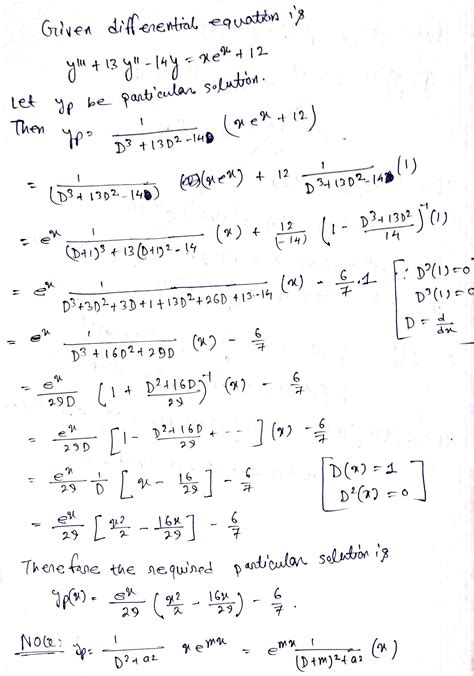 Given differential equation is
y''' + 13 y'' - 14y = xe^x + 12
Let yp be particular solution.
Then yp = 1/(D^3 + 13D^2 - 14) (xe^x + 12)
= 1/(D^3 + 13D^2 - 14) (xe^x) + 12 1/(D^3 + 13D^2 - 14) (1)
= e^x 1/((D+1)^3 + 13(D+1)^2 - 14) (x) + 12/(-14) (1 - (D^3 + 13D^2)/14)^-1 (1)
= e^x 1/(D^3 + 3D^2 + 3D + 1 + 13D^2 + 26D + 13 - 14) (x) - 6/7 . 1 [∵ D^2(1) = 0
D^3(1) = 0
D = d/dx]
= e^x 1/(D^3 + 16D^2 + 29D) (x) - 6/7
= e^x/29D (1 + (D^2 + 16D)/29)^-1 (x) - 6/7
= e^x/29D [1 - (D^2 + 16D)/29 + --- ] (x) - 6/7
= e^x/29 1/D [x - 16/29] - 6/7 [D(x) = 1
D^2(x) = 0]
= e^x/29 [x^2/2 - 16x/29] - 6/7
Therefore the required particular solution is
yp(x) = e^x/29 (x^2/2 - 16x/29) - 6/7 .
Note: yp = 1/(D^2 + a^2) x e^mx = e^mx 1/((D+m)^2 + a^2) (x)